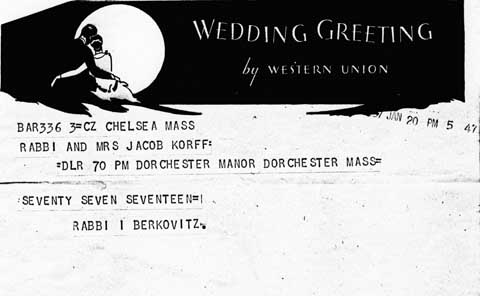 WEDDING GREETING
by WESTERN UNION
JAN 20 PM 5 47
BAR336 3=CZ CHELSEA MASS
RABBI AND MRS JACOB KORFF=
=DLR 70 PM DORCHESTER MANOR DORCHESTER MASS=
:SEVENTY SEVEN SEVENTEEN=
RABBI I BERKOVITZ.